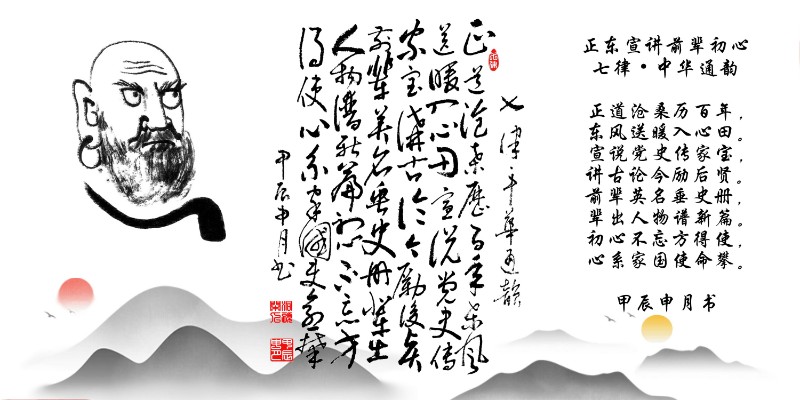 七律中華通韻
正道沧桑歷百年东风
送暖入心田宣说党史传
家宝讲古论今勵後贤
前輩英名垂史册輩出
人物谱新篇初心不忘方
得使心系家國使命攀
甲辰申月书
正东宣讲前辈初心
七律·中华通韵
正道沧桑历百年，
东风送暖入心田。
宣说党史传家宝，
讲古论今励后贤。
前辈英名垂史册，
辈出人物谱新篇。
初心不忘方得使，
心系家国使命攀。
甲辰申月书